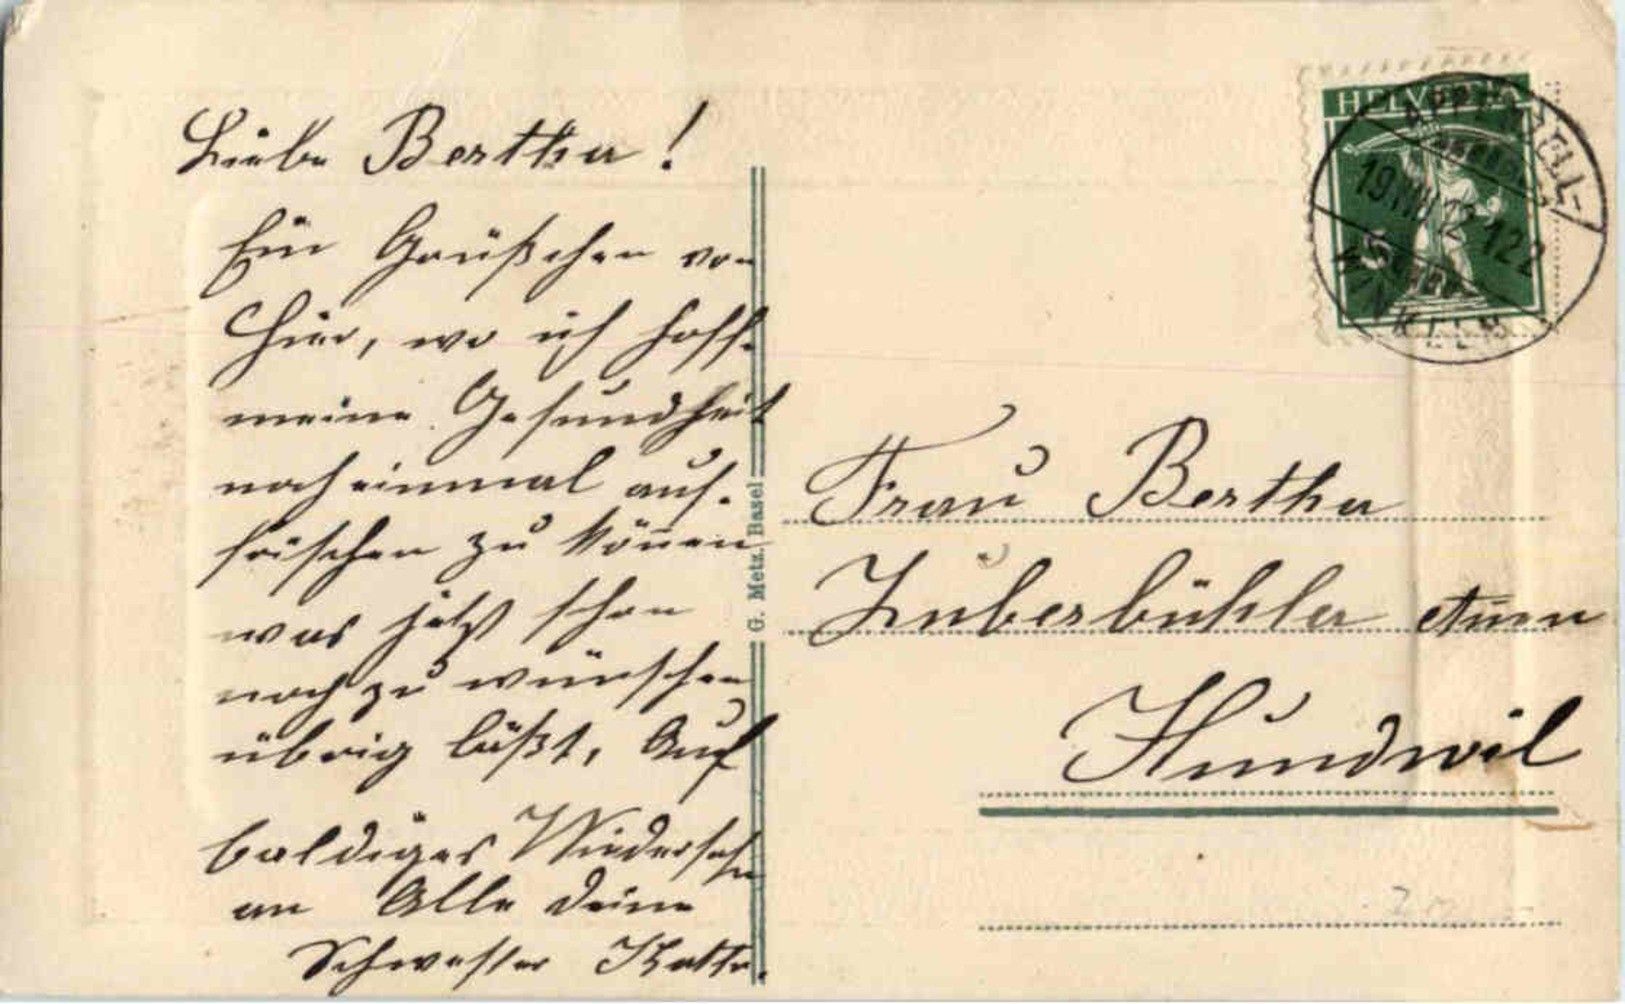 Liebe Bertha!
Ein Grüßchen von
hier, wo ich hoffe
meine Gesundheit
noch einmal auf-
frischen zu können
was jetzt schon
noch zu wünschen
übrig läßt, Auf
baldiges Wiedersehn
an Alle Deine
Schwester
G. Metz, Basel
HELVETIA
APPENZELL-
19.VIII.12
WINKELN
Frau Bertha
Zuberbühler
Hundwil